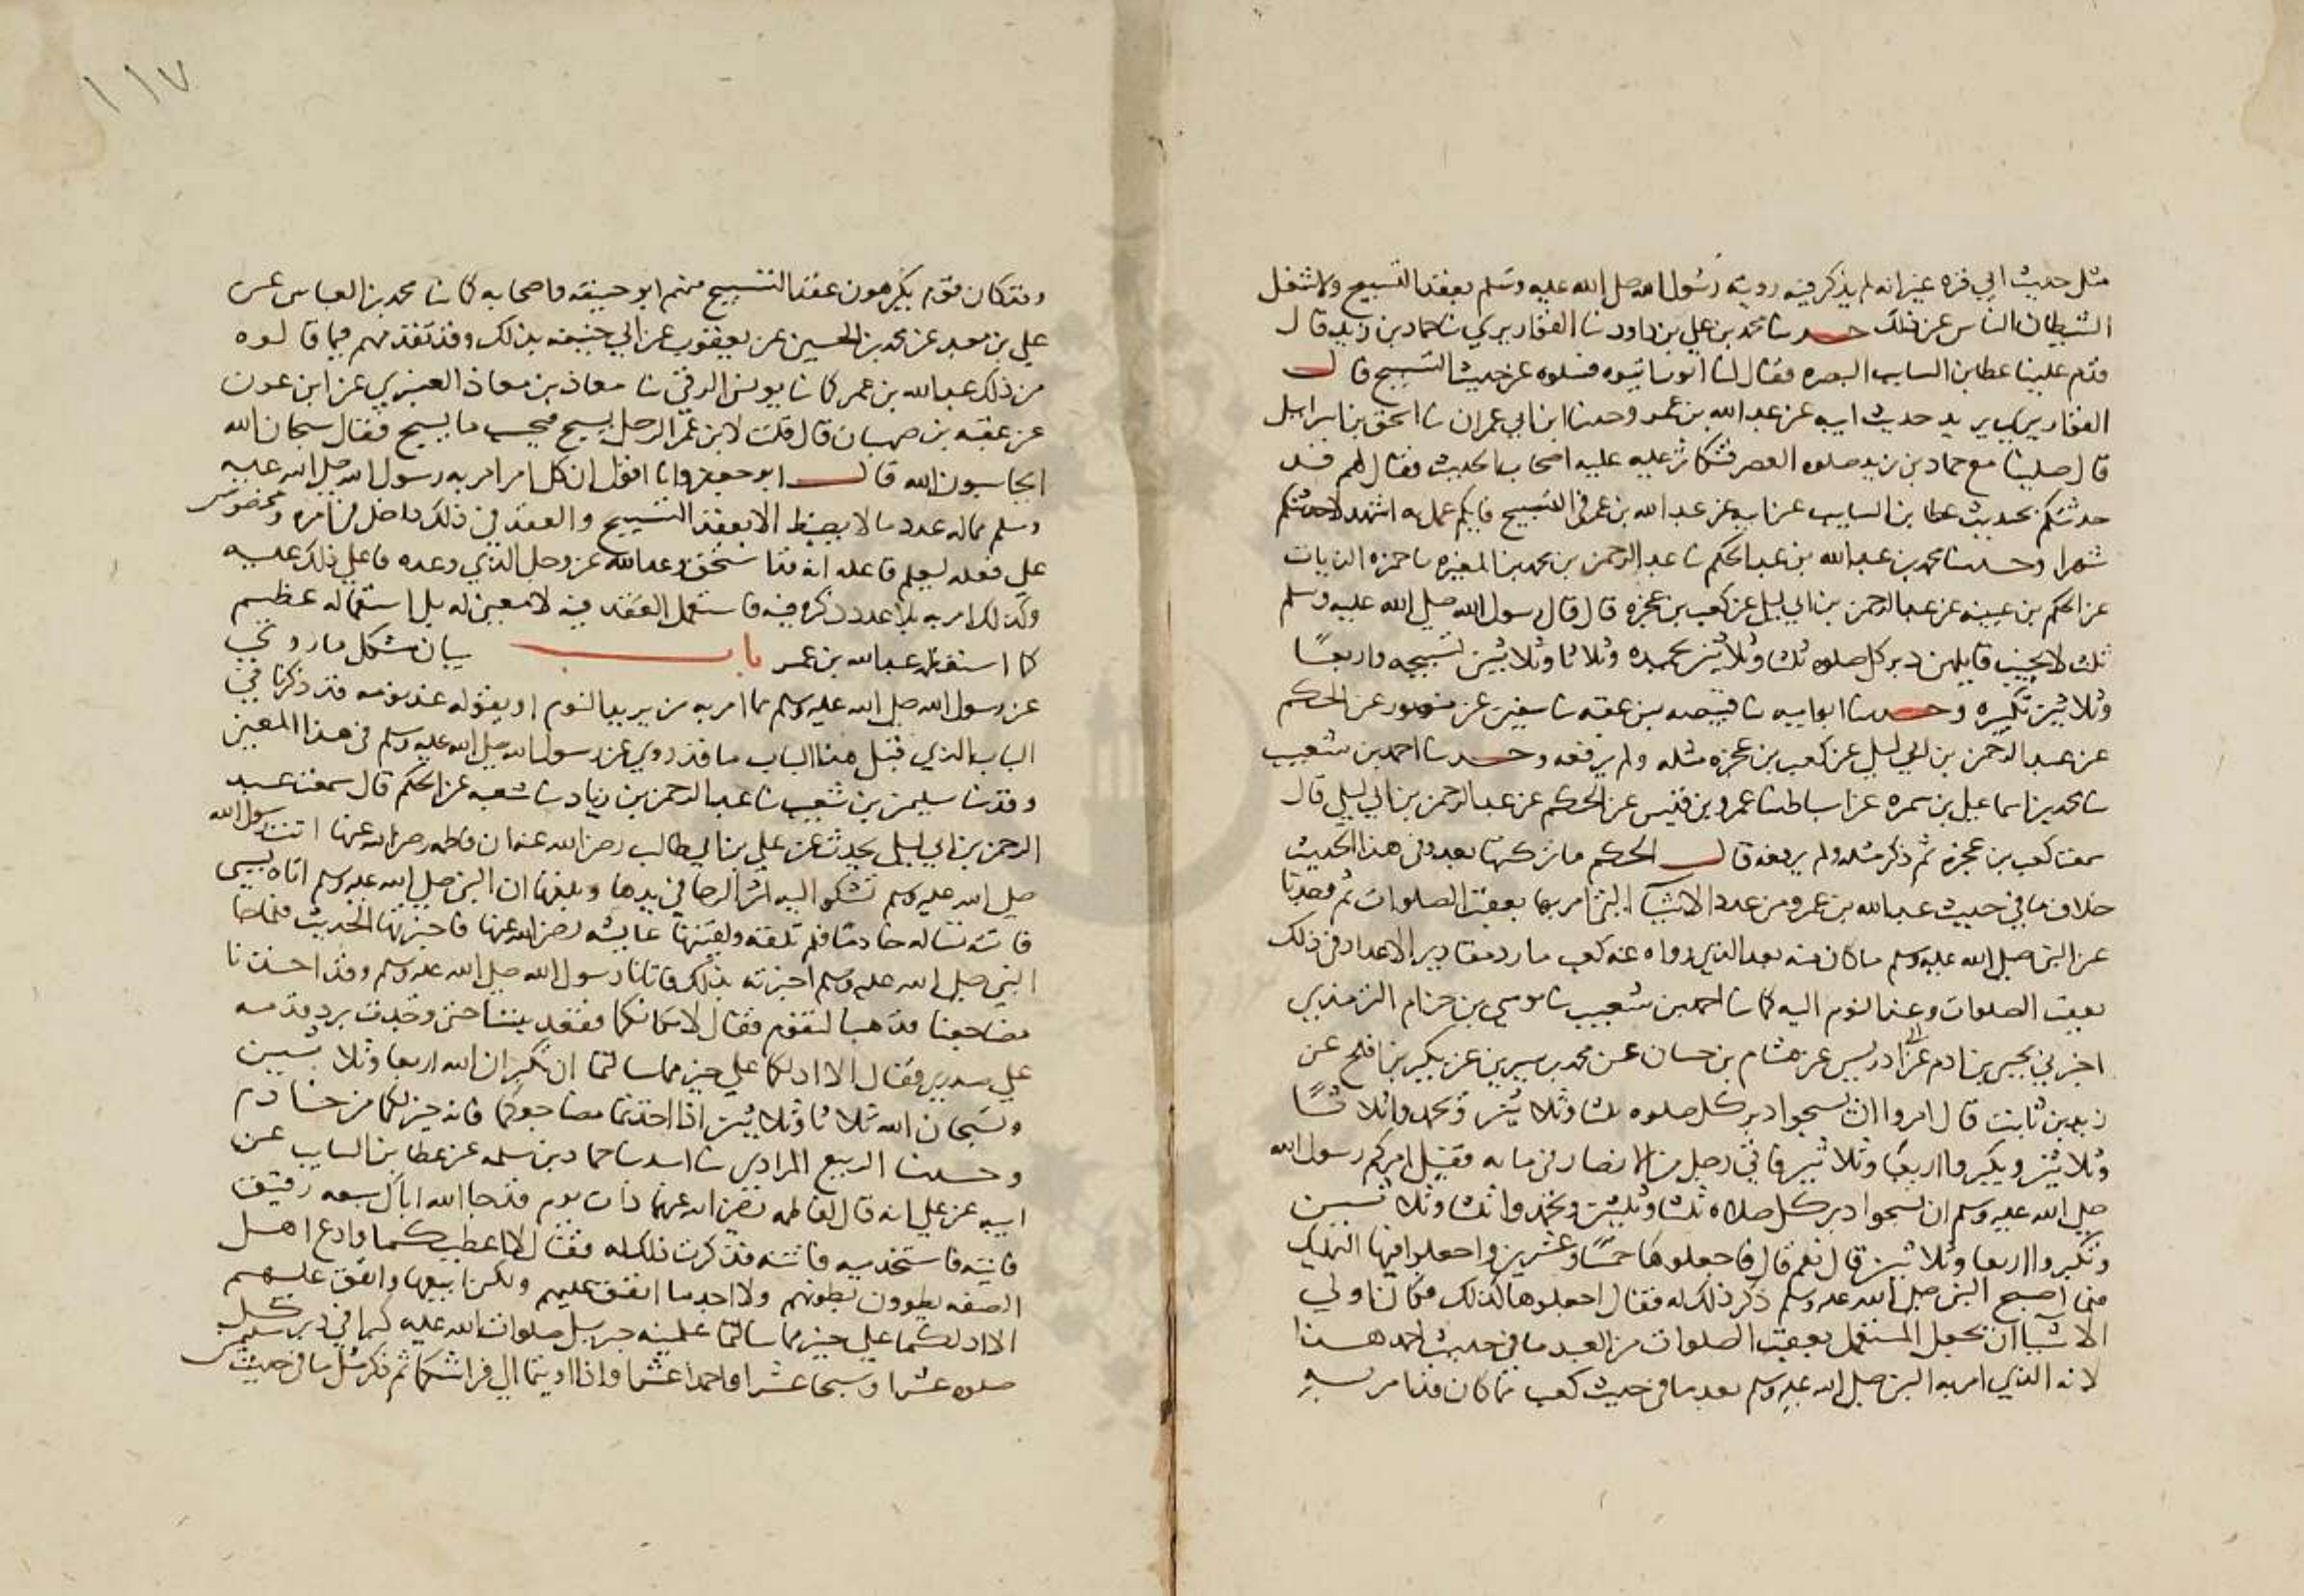 مثل حديث ابي قره غير انه لم يذكر فيه رويته رسول الله صلى الله عليه وسلم يعقد التسبيح ولا شغل
الشيطان الناس عن ذلك حدثنا محمد بن علي بن داود نا القواريري نا حماد بن زيد قال
قدم علينا عطا بن السايب البصره فقال لنا ايوب ايتوه فسلوه عن حديث التسبيح قال
القواريري يريد حديث ابيه عن عبد الله بن عمر وحدثنا ابن ابي عمران نا اسحق بن اسراييل
قال صلينا مع حماد بن زيد صلوه العصر فتكاثر عليه عليه اصحاب الحديث فقال لهم قد
حدثتكم بحديث عطا بن السايب عن ابيه عن عبد الله بن عمر في التسبيح فايكم عمل به اشهد لاحدثتكم
شهرا وحدثنا محمد بن عبد الله بن عبد الحكم نا عبد الرحمن بن محمد بن المغيره نا حمزه الزيات
عن الحكم بن عيينه عن عبد الرحمن بن ابي ليلى عن كعب بن عجره قال قال رسول الله صلى الله عليه وسلم
ثلث لا يخيب قايلهن دبر كل صلوه ثلثا وثلاثين تحميده وثلاثا وثلاثين تسبيحه واربعًا
وثلاثين تكبيره وحدثنا ابو اميه نا قبيصه بن عقبه نا سفين عن منصور عن الحكم
عن عبد الرحمن بن ابي ليلى عن كعب بن عجره مثله ولم يرفعه وحدثنا احمد بن شعيب
نا محمد بن اسماعيل بن سمره عن اسباط نا عمرو بن قيس عن الحكم عن عبد الرحمن بن ابي ليلى قال
سمعت كعب بن عجره ثم ذكر مثله ولم يرفعه قال الحكم ما تركتها بعد وفي هذا الحديث
خلاف ما في حديث عبد الله بن عمرو من عدد الاشيآ التي امر بها بعقب الصلوات ثم وجدنا
عن النبي صلى الله عليه وسلم ما كان منه بعد الذي رواه عنه كعب ما رد مقادير الاعداد في ذلك
بعقب الصلوات وعند النوم اليه كما نا احمد بن شعيب نا موسى بن حزام الترمذي
اخبرني يحيى بن ادم عن ابن ادريس عن هشام بن حسان عن محمد بن سيرين عن بكير بن افلح عن
زيد بن ثابت قال امروا ان يسبحوا دبر كل صلوه ثلثا وثلاثين ويحمدوا ثلاثًا
وثلاثين ويكبروا اربعًا وثلاثين فاتي رجل من الانصار في منامه فقيل امركم رسول الله
صلى الله عليه وسلم ان تسبحوا دبر كل صلاه ثلثا وثلثين وتحمدوا ثلثا وثلاثين
وتكبروا اربعا وثلاثين قال نعم قال فاجعلوها خمسًا وعشرين واجعلوا فيها التهليل
فلما اصبح اتى النبي صلى الله عليه وسلم ذكر ذلك له فقال اجعلوها كذلك فكان اولى
الاشيا ان يجعل المستعمل بعقب الصلوات من العدد ما في حديث احمد هذا
لانه الذي امر به النبي صلى الله عليه وسلم بعد ما في حديث كعب مما كان قد امر به
١١٧
وقد كان قوم يكرهون عقد التسبيح منهم ابو حنيفه واصحابه كما نا محمد بن العباس عن
علي بن معبد عن محمد بن الحسين عن يعقوب عن ابي حنيفه بذلك وقد تقدمهم فيما قالوه
من ذلك عبد الله بن عمر كما نا يونس الرقي نا معاذ بن معاذ العنبري عن ابن عون
عن عقبه بن صهبان قال قلت لابن عمر الرجل يسبح فيحسب ما يسبح فقال سبحان الله
اتحاسبون الله قال ابو جعفر وانا اقول ان كل امر امر به رسول الله صلى الله عليه
وسلم مما له عدد مما لا يضبط الا بعقد التسبيح والعقد في ذلك داخل في امره ومحضوض
على فعله ليعلم فاعله انه قد استحق وعد الله عز وجل الذي وعده فاعلي ذلك عليه
وكذلك امر به بلا عدد ذكره فيه فاستعمل العقد فيه لا معنى له بل استعماله عظيم
كما استعظمه عبد الله بن عمر باب بيان مشكل ما روي
عن رسول الله صلى الله عليه وسلم مما امر به من يريد النوم ان يقوله عند نومه قد ذكرنا في
الباب الذي قبل هذا الباب ما قد روي عن رسول الله صلى الله عليه وسلم في هذا المعنى
وقد نا سليمن بن شعيب نا عبد الرحمن بن زياد نا شعبه عن الحكم قال سمعت عبد
الرحمن بن ابي ليلى يحدث عن علي بن ابي طالب رضي الله عنه ان فاطمه رضي الله عنها اتت رسول الله
صلى الله عليه وسلم تشكو اليه اثر الرحا في يدها وبلغها ان النبي صلى الله عليه وسلم اتاه سبي
فاتته تساله خادما فلم تلقه ولقيتها عايشه رضي الله عنها فاخبرتها الحديث فلما جا
النبي صلى الله عليه وسلم اخبرته بذلك فاتانا رسول الله صلى الله عليه وسلم وقد اخذنا
مضاجعنا فذهبنا لنقوم فقال لا مكانكما فقعد بيننا حتى وجدت برد قدمه
على صدري فقال الا ادلكما على خير مما سالتما ان تكبران الله اربعا وثلاثين
وتسبحان الله ثلاثا وثلاثين اذا اخذتما مضاجعكما فانه خير لكما من خادم
وحدثنا الربيع المرادي نا اسد نا حماد بن سلمه عن عطا بن السايب عن
ابيه عن علي انه قال لفاطمه رضي الله عنهما ذات يوم قد جا الله اباك بسعه رقيق
فاتيه فاستخدميه فاتته فذكرت ذلك له فقال لا اعطيكما وادع اهل
الصفه يطوون بطونهم ولا اجد ما انفق عليهم ولكن ابيعها وانفق عليهم
الا ادلكما على خير مما سالتما علمنيه جبريل صلوات الله عليه كبرا في دبر كل
صلوه عشرا وسبحا عشرا واحمدا عشرا واذا اويتما الى فراشكما ثم ذكر مثل ما في حديث سليمن